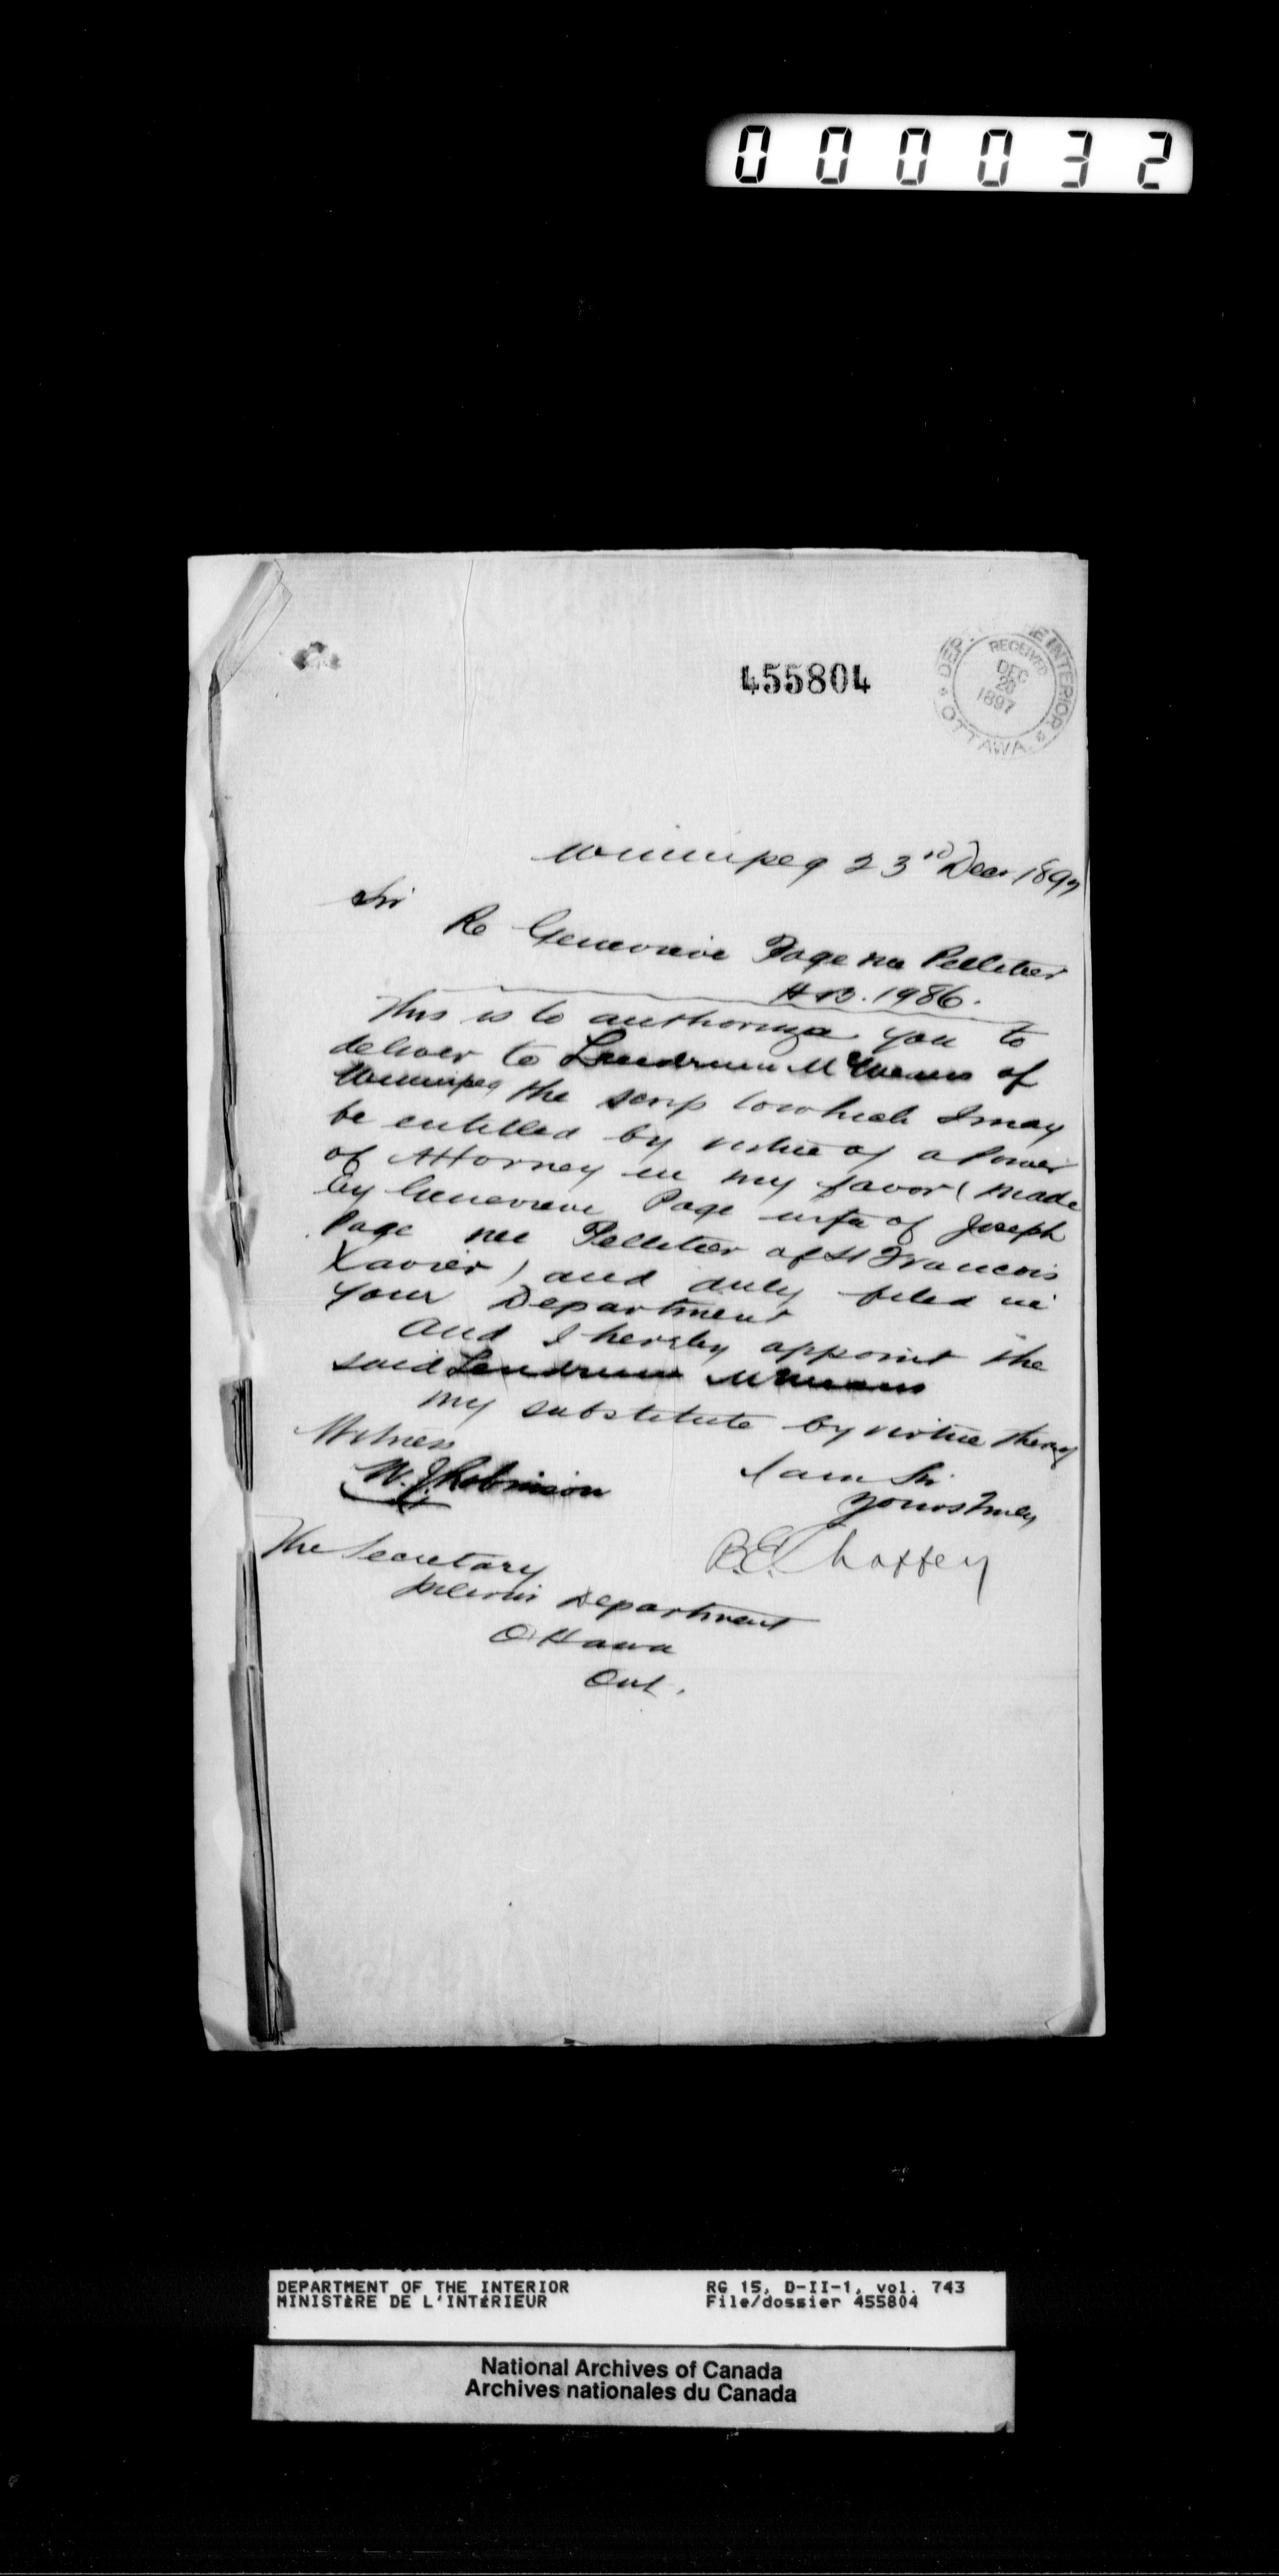 000032
455804
DEPT. OF THE INTERIOR
RECEIVED
DEC
28
1897
* OTTAWA *
Winnipeg 23rd Decr 1897
Sir
Re Genevieve Page nee Pelletier
H B. 1986.
This is to authorize you to
deliver to Lendrum McMeans of
Winnipeg the scrip to which I may
be entitled by virtue of a Power
of Attorney in my favor (made
by Genevieve Page wife of Joseph
Page nee Pelletier of St Francois
Xavier) and duly filed in
your Department
And I hereby appoint the
said Lendrum McMeans
my substitute by virtue thereof
Witness
I am Sir
W. J. Robinson
Yours truly
B.E. Chaffey
The Secretary
Interior Department
Ottawa
Ont.
DEPARTMENT OF THE INTERIOR
MINISTèRE DE L'INTéRIEUR
RG 15, D-II-1, vol. 743
File/dossier 455804
National Archives of Canada
Archives nationales du Canada